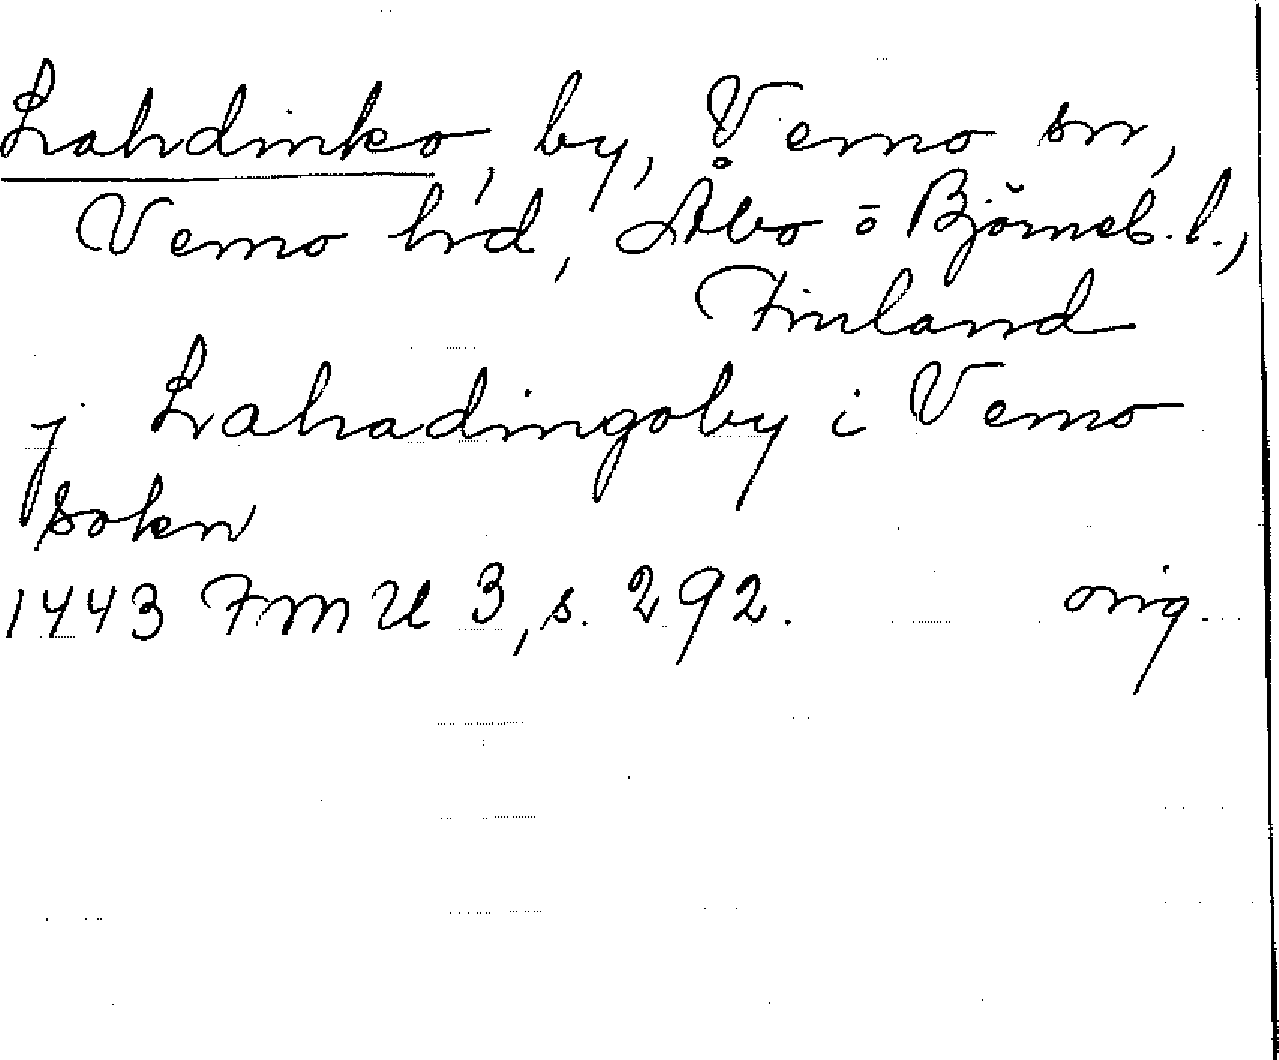 Lahdinko, by, Vemo sn,
Vemo hrd, Åbo o Björneb. l.,
Finland
j Lahadingoby i Vemo
sokn
1443 FMU 3, s. 292. orig.